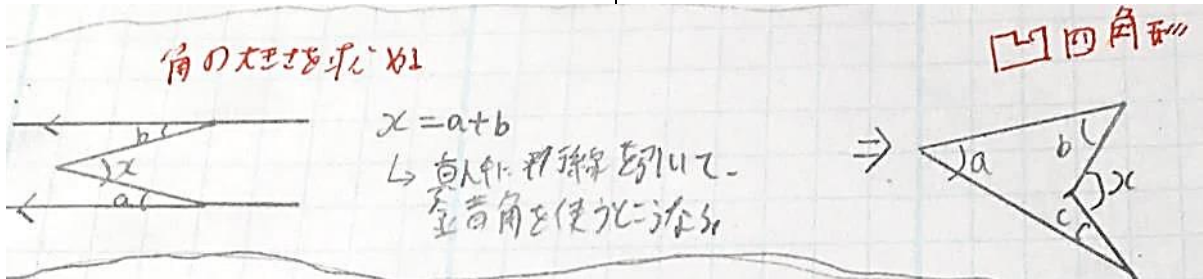 角の大きさを求めよ
凹四角形
b
x
a
x=a+b
↳ 真ん中に平行線を引いて、
錯角を使うとこうなる
⇒
a
b
x
c